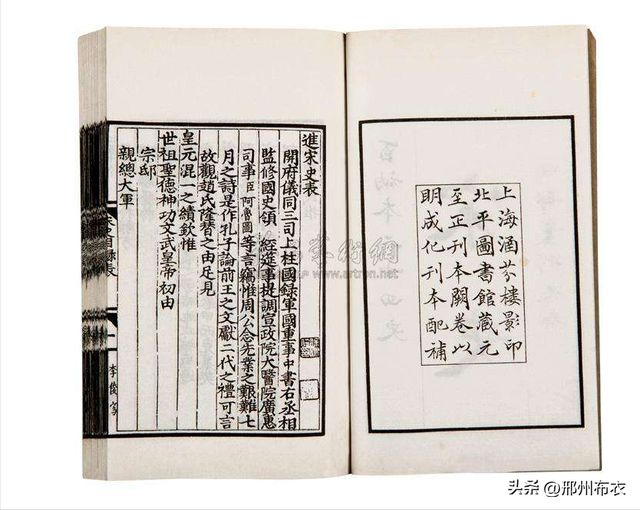 上海涵芬樓影印
北平圖書館藏元
至正刊本闕卷以
明成化刊本配補
進宋史表
開府儀同三司上柱國録軍國重事中書右丞相
監修國史領 經筵事提調宣政院大醫院廣惠
司事臣阿魯圖等言竊惟周公念先業之艱難七
月之詩是作孔子論前王之文獻二代之禮可言
故觀趙氏隆替之由足見
皇元混一之績欽惟
世祖聖德神功文武皇帝初由
宗邸
親總大軍
www.artron.net
头条 @邢州布衣